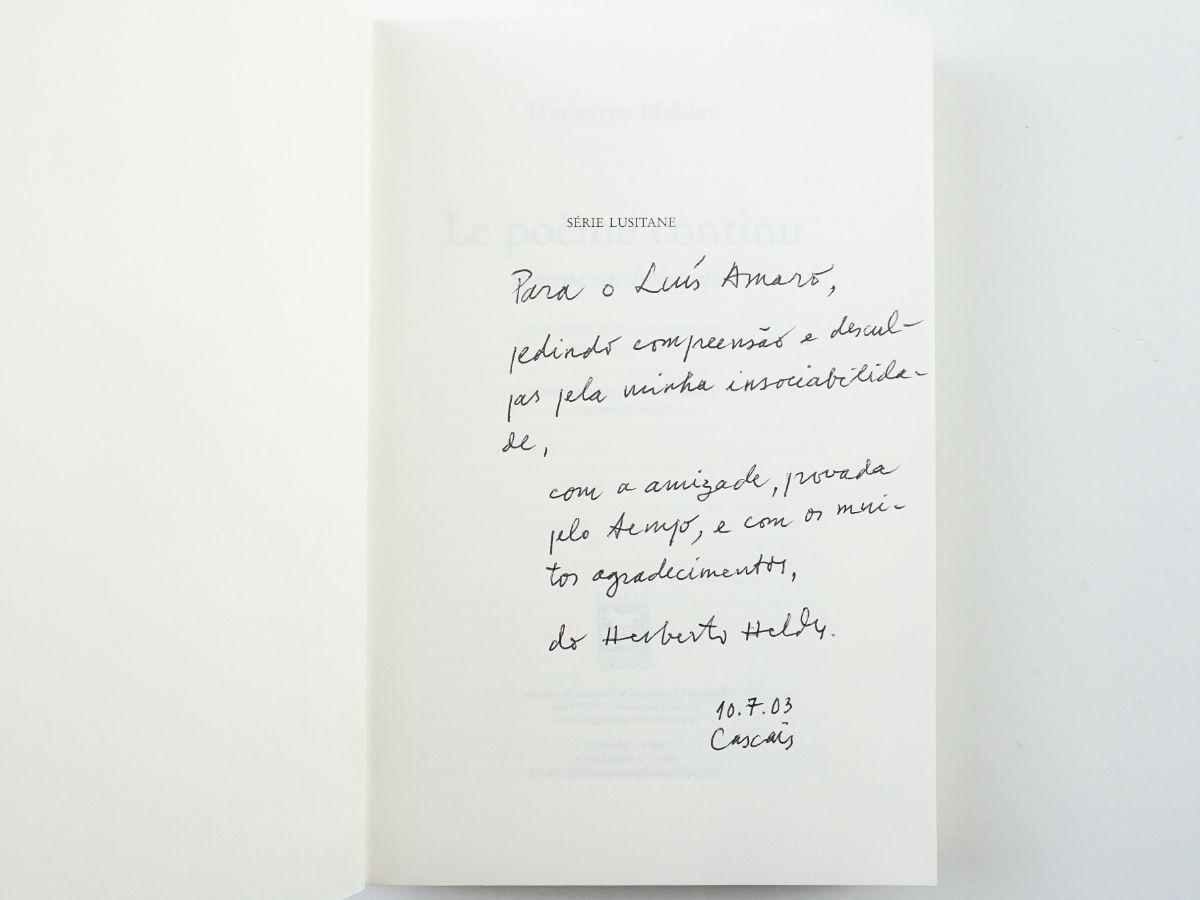 Herberto Helder
SÉRIE LUSITANE
Le poème continu
Para o Luís Amaro,
pedindo compreensão e descul-
pas pela minha insociabilida-
de,
com a amizade, provada
pelo tempo, e com os mui-
tos agradecimentos,
do Herberto Helder.
10.7.03
Cascais